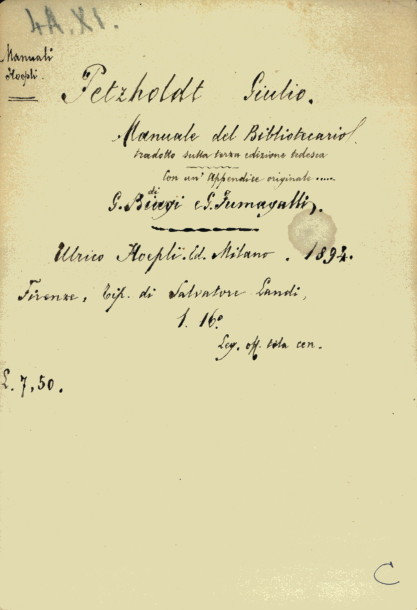 4A.XI.
Manuali
Hoepli.
Petzholdt Giulio.
Manuale del Bibliotecario
tradotto sulla terza edizione tedesca
Con un' Appendice originale .....
di
G. Biagi e G. Fumagalli.
Ulrico Hoepli. Ed. Milano. 1894.
Firenze, Tip. di Salvatore Landi,
1. 16º
Leg. off. tela cen.
L. 7,50.
C